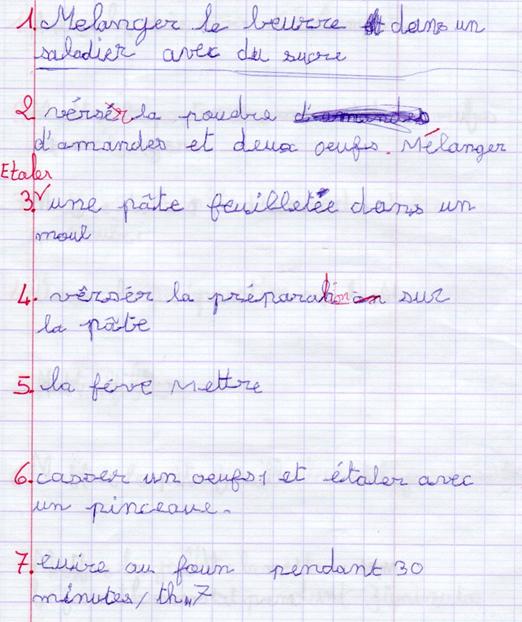 1. Melanger le beurre dans un
saladier avec du sucre
2 vérsér la poudre d'amandes
d'amandes et deux oeufs. Mélanger
Etaler
3. une pâte feuilletée dans un
moul
4. vérsér la préparation sur
la pâte
5. la féve Mettre
6. casser un oeufs, et étaler avec
un pinceaue.
7. Cuire au foun pendant 30
minutes / th 7